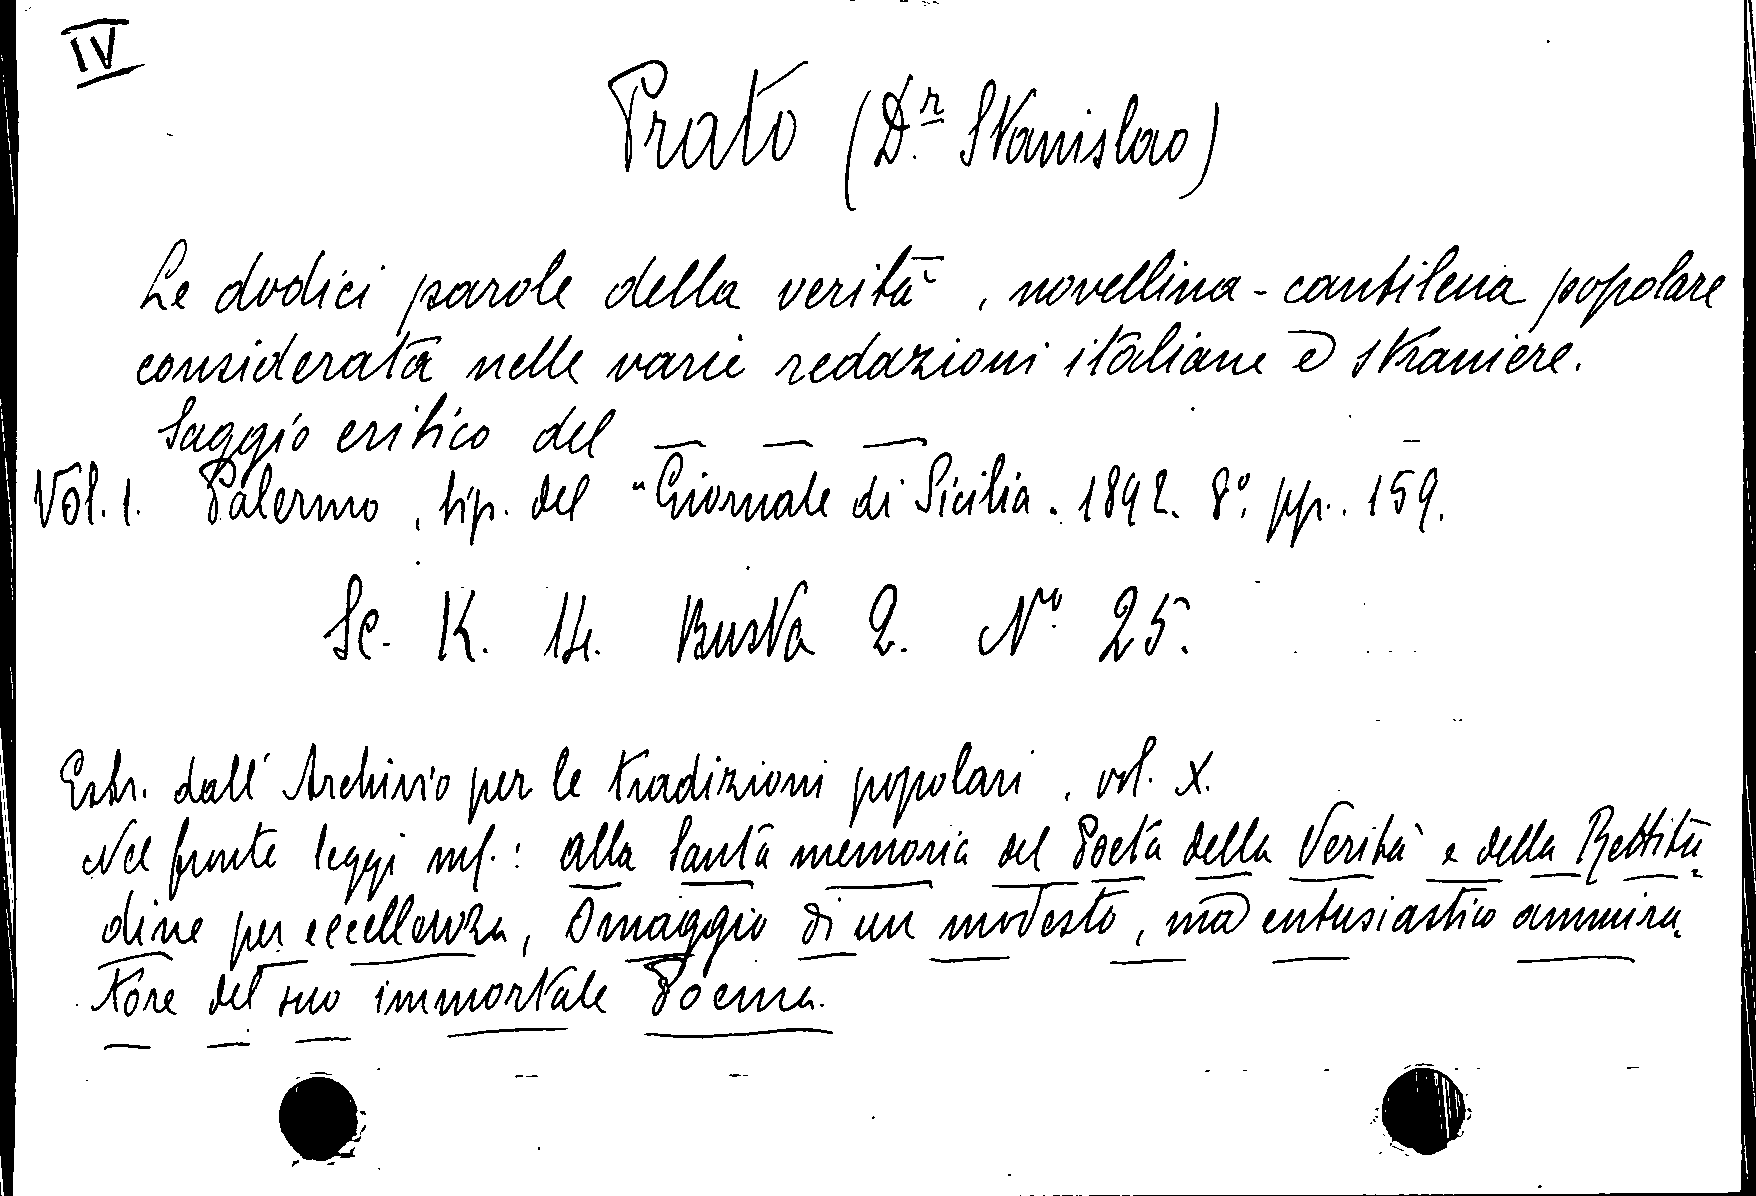 IV
Prato (D.r Stanislao)
Le dodici parole della verità, novellina-cantilena popolare
considerata nelle varie redazioni italiane e straniere.
Saggio critico del — — —
Vol. 1. Palermo, tip. del "Giornale di Sicilia. 1892. 8.° pp. 159.
Sc. K. 14. Busta 2. N.o 25.
Estr. dall'Archivio per le tradizioni popolari, vol. X.
Nel fronte leggi ms.: alla santa memoria del Poeta della Verità e della Rettitu-
dine per eccellenza, Omaggio di un modesto, ma entusiastico ammira-
tore del suo immortale Poema.